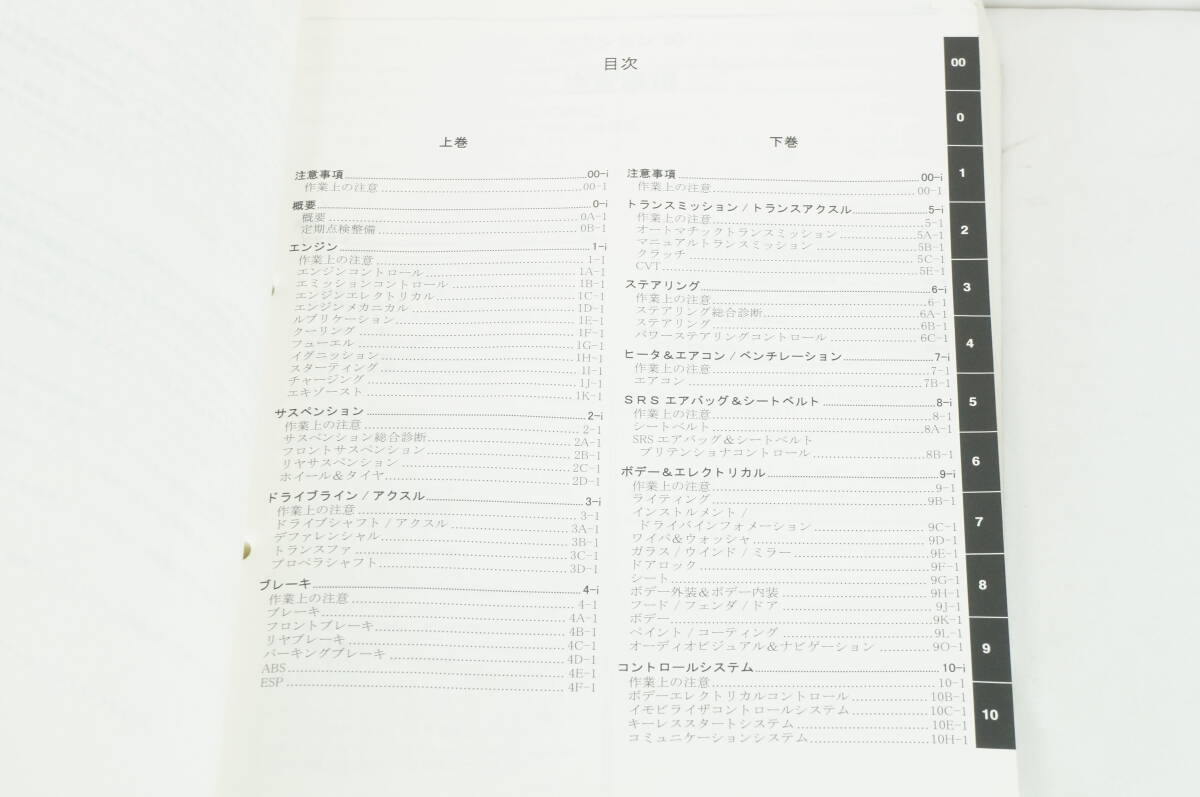 目次
上巻
注意事項 00-i
作業上の注意 00-1
概要 0-i
概要 0A-1
定期点検整備 0B-1
エンジン 1-i
作業上の注意 1-1
エンジンコントロール 1A-1
エミッションコントロール 1B-1
エンジンエレクトリカル 1C-1
エンジンメカニカル 1D-1
ルブリケーション 1E-1
クーリング 1F-1
フューエル 1G-1
イグニッション 1H-1
スターティング 1I-1
チャージング 1J-1
エキゾースト 1K-1
サスペンション 2-i
作業上の注意 2-1
サスペンション総合診断 2A-1
フロントサスペンション 2B-1
リヤサスペンション 2C-1
ホイール＆タイヤ 2D-1
ドライブライン / アクスル 3-i
作業上の注意 3-1
ドライブシャフト / アクスル 3A-1
デファレンシャル 3B-1
トランスファ 3C-1
プロペラシャフト 3D-1
ブレーキ 4-i
作業上の注意 4-1
ブレーキ 4A-1
フロントブレーキ 4B-1
リヤブレーキ 4C-1
パーキングブレーキ 4D-1
ABS 4E-1
ESP 4F-1
下巻
注意事項 00-i
作業上の注意 00-1
トランスミッション / トランスアクスル 5-i
作業上の注意 5-1
オートマチックトランスミッション 5A-1
マニュアルトランスミッション 5B-1
クラッチ 5C-1
CVT 5E-1
ステアリング 6-i
作業上の注意 6-1
ステアリング総合診断 6A-1
ステアリング 6B-1
パワーステアリングコントロール 6C-1
ヒータ＆エアコン / ベンチレーション 7-i
作業上の注意 7-1
エアコン 7B-1
ＳＲＳ エアバッグ＆シートベルト 8-i
作業上の注意 8-1
シートベルト 8A-1
SRS エアバッグ＆シートベルト
プリテンショナコントロール 8B-1
ボデー＆エレクトリカル 9-i
作業上の注意 9-1
ライティング 9B-1
インストルメント /
ドライバインフォメーション 9C-1
ワイパ＆ウォッシャ 9D-1
ガラス / ウインド / ミラー 9E-1
ドアロック 9F-1
シート 9G-1
ボデー外装＆ボデー内装 9H-1
フード / フェンダ / ドア 9J-1
ボデー 9K-1
ペイント / コーティング 9L-1
オーディオビジュアル＆ナビゲーション 9O-1
コントロールシステム 10-i
作業上の注意 10-1
ボデーエレクトリカルコントロール 10B-1
イモビライザコントロールシステム 10C-1
キーレススタートシステム 10E-1
コミュニケーションシステム 10H-1
00
0
1
2
3
4
5
6
7
8
9
10